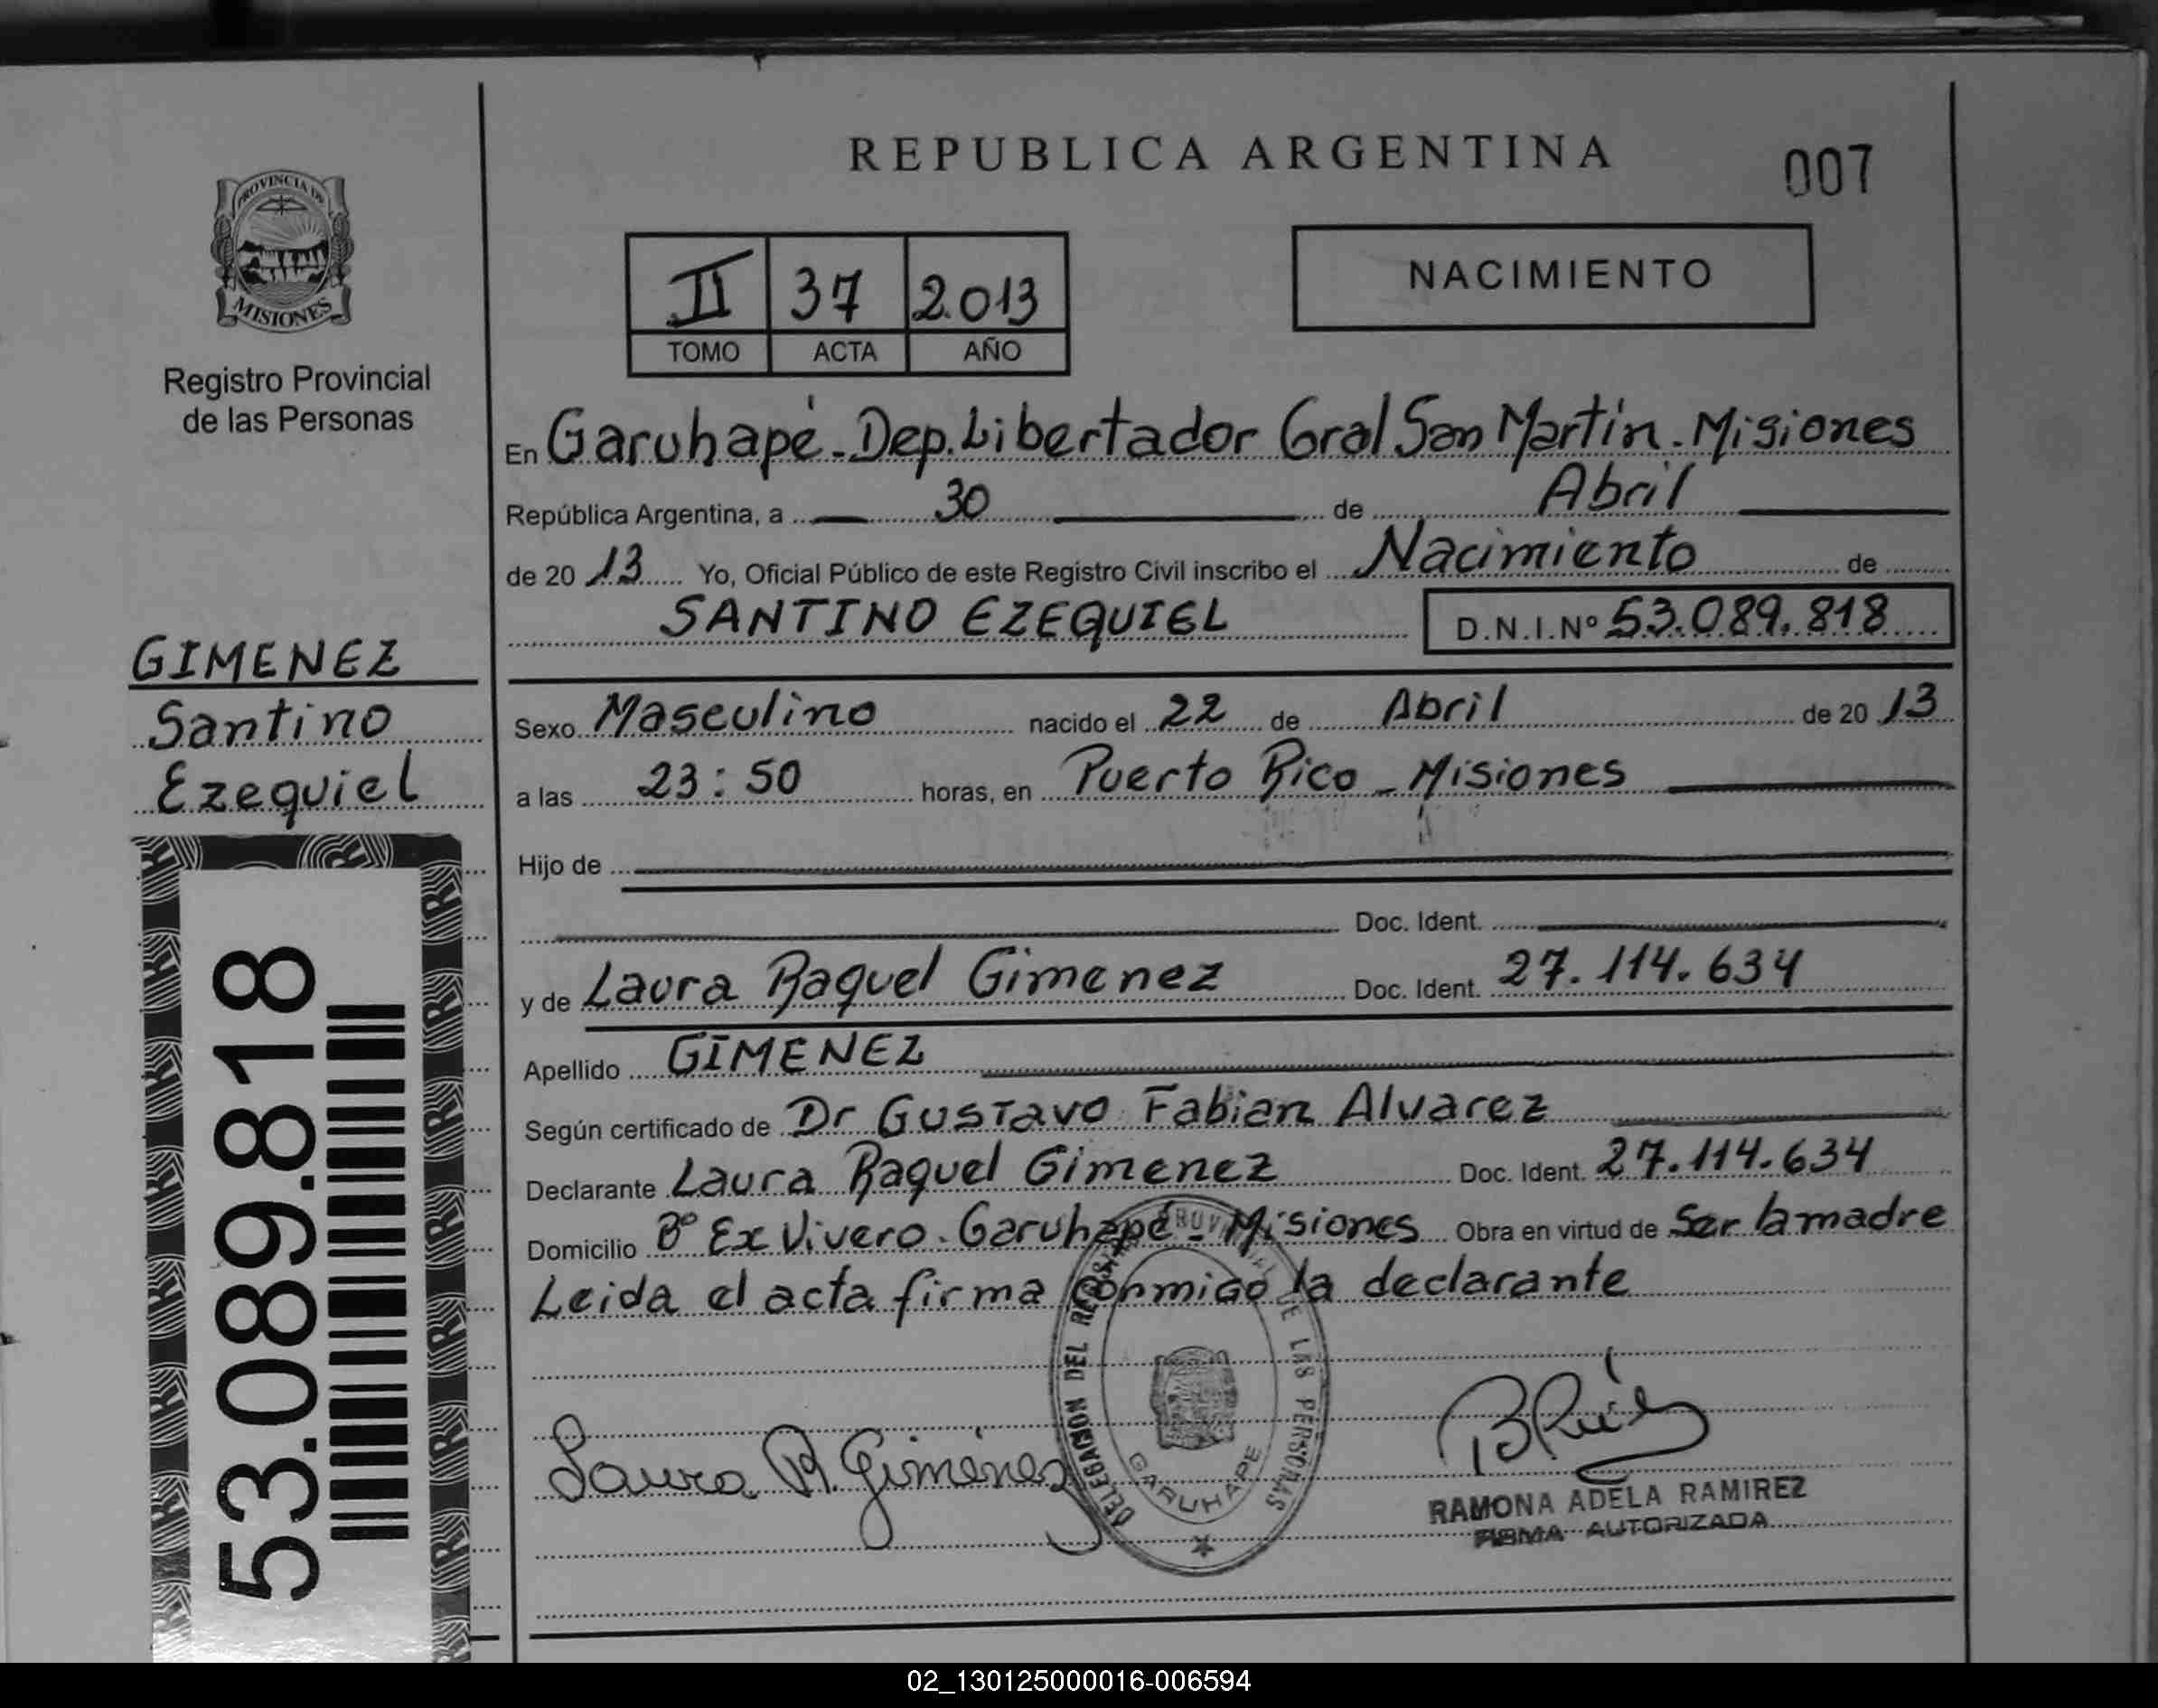 REPUBLICA ARGENTINA
007
PROVINCIA DE
MISIONES
Registro Provincial
de las Personas
II 37 2.013
TOMO ACTA AÑO
NACIMIENTO
En Garuhapé-Dep.Libertador Gral San Martín-Misiones
República Argentina, a 30 de Abril
de 20 13 Yo, Oficial Público de este Registro Civil inscribo el Nacimiento de
SANTINO EZEQUIEL D.N.I.Nº 53.089.818
GIMENEZ
Santino
Ezequiel
Sexo Masculino nacido el 22 de Abril de 20 13
a las 23:50 horas, en Puerto Rico - Misiones
Hijo de
Doc. Ident.
y de Laura Raquel Gimenez Doc. Ident. 27.114.634
Apellido GIMENEZ
Según certificado de Dr Gustavo Fabian Alvarez
Declarante Laura Raquel Gimenez Doc. Ident. 27.114.634
Domicilio Bº Ex Vivero. Garuhapé - Misiones Obra en virtud de Ser la madre
Leida el acta firma conmigo la declarante
53.089.818
DELEGACION DEL REGISTRO PROVINCIAL DE LAS PERSONAS
GARUHAPE
Laura R. Gimenez
RAMONA ADELA RAMIREZ
FIRMA AUTORIZADA
02_130125000016-006594